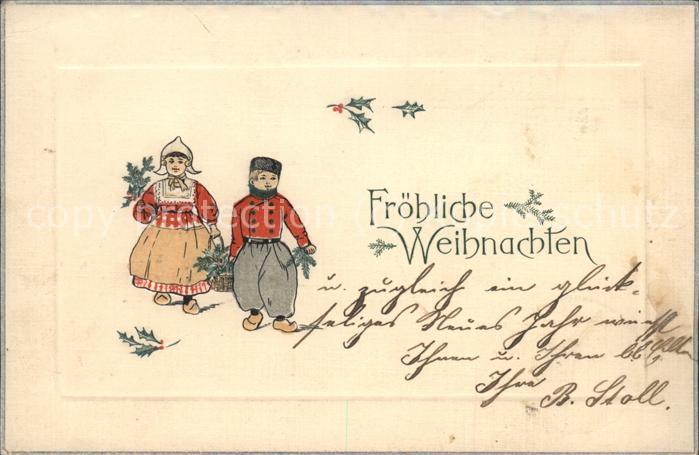 Fröhliche
Weihnachten
u. zugleich ein glück-
seliges Neues Jahr wünscht
Ihnen u. Ihren lb.
Ihre
B. Stoll.
copy protection